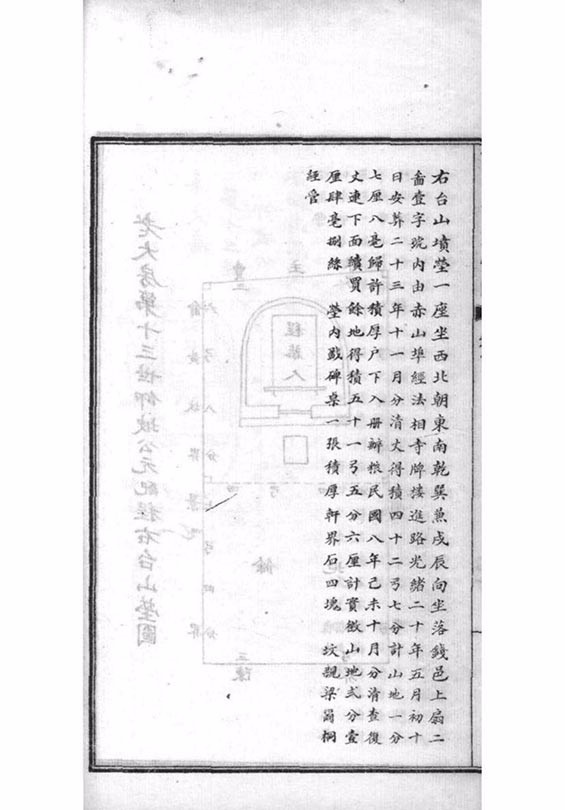 右台山墳塋一座坐西北朝東南乾巽兼戌辰向坐落錢邑上扇二
啚壹字號內由赤山埠經法相寺牌樓進路光緒二十年五月初十
日安葬二十三年十一月分清丈得積四十二弓七分計山地一分
七厘八毫歸許積厚戶下入册辦糧民國八年己未十月分清查復
丈連下面續買餘地得積五十一弓五分六厘計實徵山地弍分壹
厘肆毫捌絲 塋內戤碑桌一張積厚軒界石四塊 坟親梁阿桐
經管